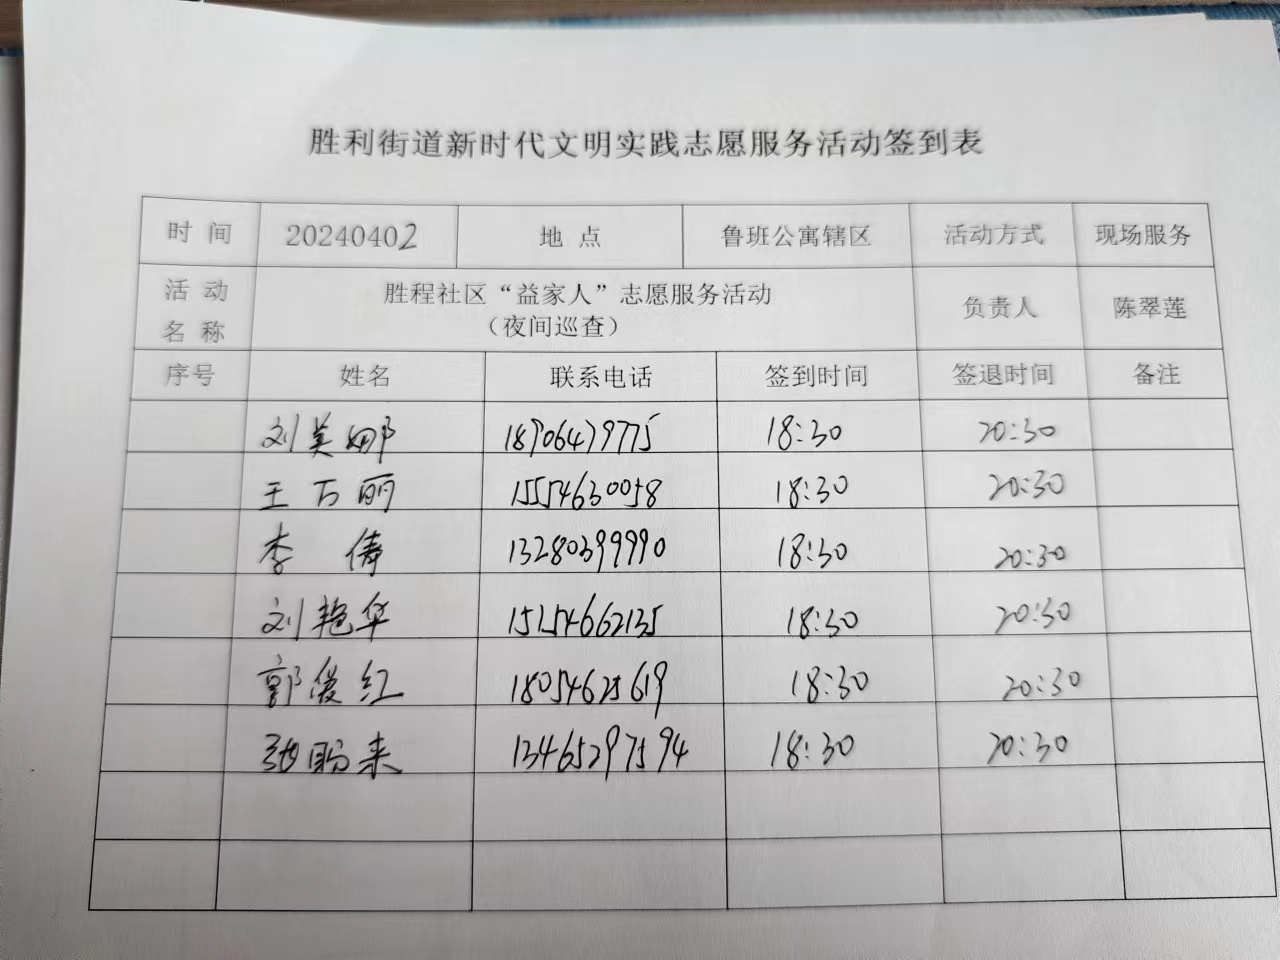 胜利街道新时代文明实践志愿服务活动签到表
时 间 20240402 地 点 鲁班公寓辖区 活动方式 现场服务
活 动 名 称 胜程社区“益家人”志愿服务活动 （夜间巡查） 负责人 陈翠莲
序号 姓名 联系电话 签到时间 签退时间 备注
刘美娜 18906479775 18:30 20:30
王万丽 15554630058 18:30 20:30
李 倩 13280399990 18:30 20:30
刘艳华 15154662135 18:30 20:30
郭俊红 18054625619 18:30 20:30
张盼来 13465297594 18:30 20:30